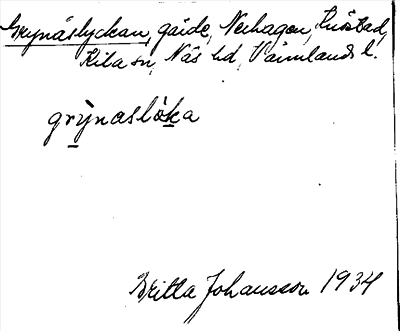 Grynäslyckan, gärde, Nerhagen, Knöstad,
Kila sn, Näs hd, Värmlands l.
grỳnaslöka
Britta Johansson 1934